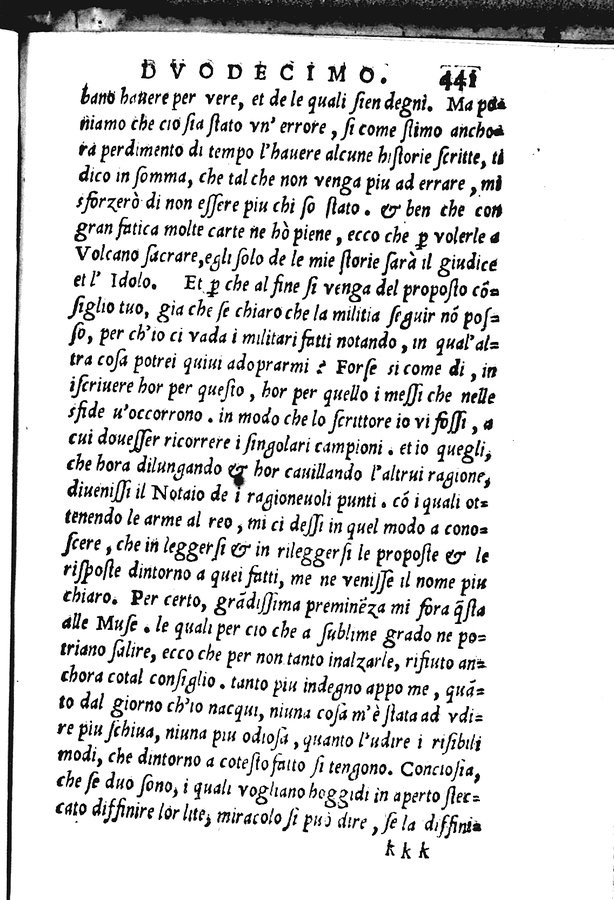 DVODECIMO. 441
bano hauere per vere, et de le quali ſien degni. Ma po=
niamo che cio ſia ſtato vn' errore, ſi come ſtimo ancho=
ra perdimento di tempo l'hauere alcune hiſtorie ſcritte, ti
dico in ſomma, che tal che non venga piu ad errare, mi
sforzerò di non eſſere piu chi ſo ſtato. & ben che con
gran fatica molte carte ne hò piene, ecco che ꝑ volerle a
Volcano ſacrare, egli ſolo de le mie ſtorie ſarà il giudice
et l' Idolo. Et ꝑ che al fine ſi venga del propoſto cō=
ſiglio tuo, gia che ſe chiaro che la militia ſeguir nō poſ=
ſo, per ch'io ci vada i militari fatti notando, in qual'al=
tra coſa potrei quiui adoprarmi ? Forſe ſi come di, in
iſcriuere hor per queſto, hor per quello i meſſi che nelle
sfide u'occorrono. in modo che lo ſcrittore io vi foſſi, a
cui doueſſer ricorrere i ſingolari campioni. et io quegli,
che hora dilungando & hor cauillando l'altrui ragione,
diueniſſi il Notaio de i ragioneuoli punti. cō i quali ot=
tenendo le arme al reo, mi ci deſſi in quel modo a cono=
ſcere, che in leggerſi & in rileggerſi le propoſte & le
riſpoſte dintorno a quei fatti, me ne veniſſe il nome piu
chiaro. Per certo, grādiſſima preminēza mi fora q̄ſta
alle Muſe. le quali per cio che a ſublime grado ne po=
triano ſalire, ecco che per non tanto inalzarle, rifiuto an=
chora cotal conſiglio. tanto piu indegno appo me, quā=
to dal giorno ch'io nacqui, niuna coſa m'è ſtata ad vdi=
re piu ſchiua, niuna piu odioſa, quanto l'udire i riſibili
modi, che dintorno a coteſto fatto ſi tengono. Concioſia,
che ſe duo ſono, i quali vogliano hoggidi in aperto ſtec=
cato diffinire lor lite, miracolo ſi può dire, ſe la diffini=
k k k